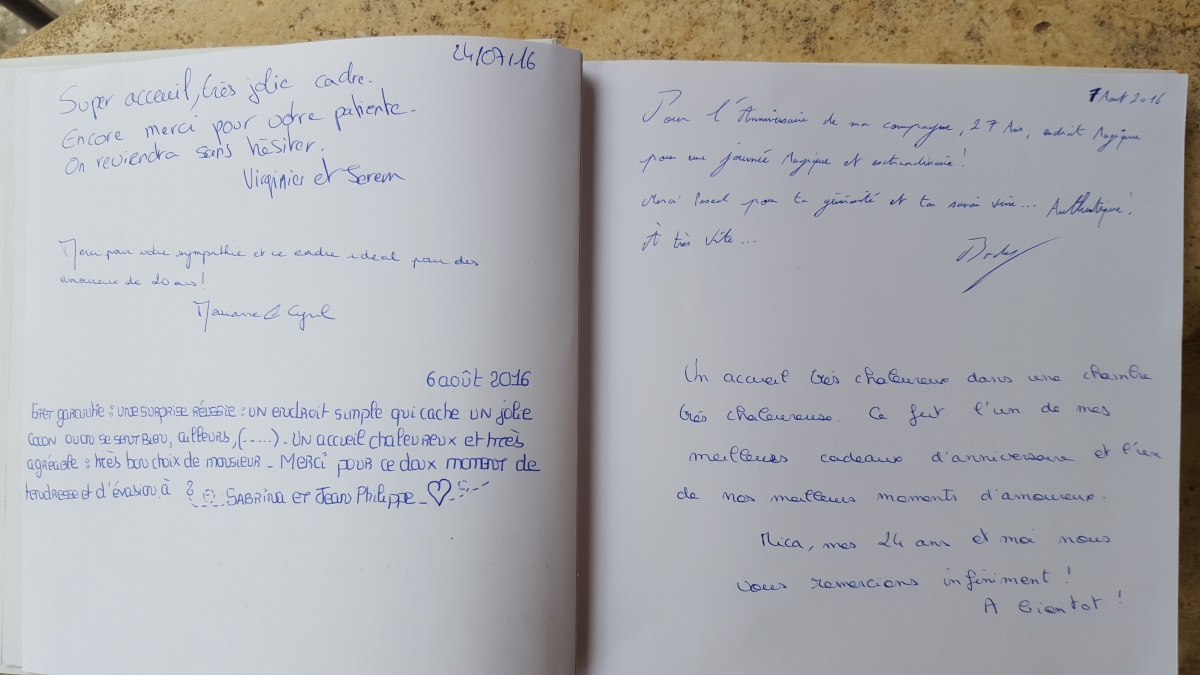 24/07/16
Super acceuil, très jolie cadre.
Encore merci pour votre patiente.
On reviendra sans hésiter.
Virginie et
Merci pour votre sympathie et ce cadre idéal pour des
amoureux de 20 ans!
Marianne & Cyril
6 août 2016
Effet garantie : UNE SURPRISE RÉUSSIE : UN endroit simple qui cache UN jolie
cocon où on se sent bien, ailleurs, (.....). UN accueil chaleureux et très
agréable : très bon choix de monsieur _ MERCI pour ce doux moment de
tendresse et d'évasion à 2
SABRINA et Jean Philippe _
7 Aout 2016
Pour l'Anniversaire de ma compagne, 27 Ans, endroit Magique
pour une journée Magique et extraordinaire!
Merci Pascal pour ta générosité et ton savoir vivre... Authentique!
À très Vite...
Un accueil très chaleureux dans une chambre
très chaleureuse. Ce fut l'un de mes
meilleurs cadeaux d'anniversaire et l'un
de nos meilleurs moments d'amoureux.
Mica, mes 24 ans et moi nous
vous remercions infiniment !
A bientot !